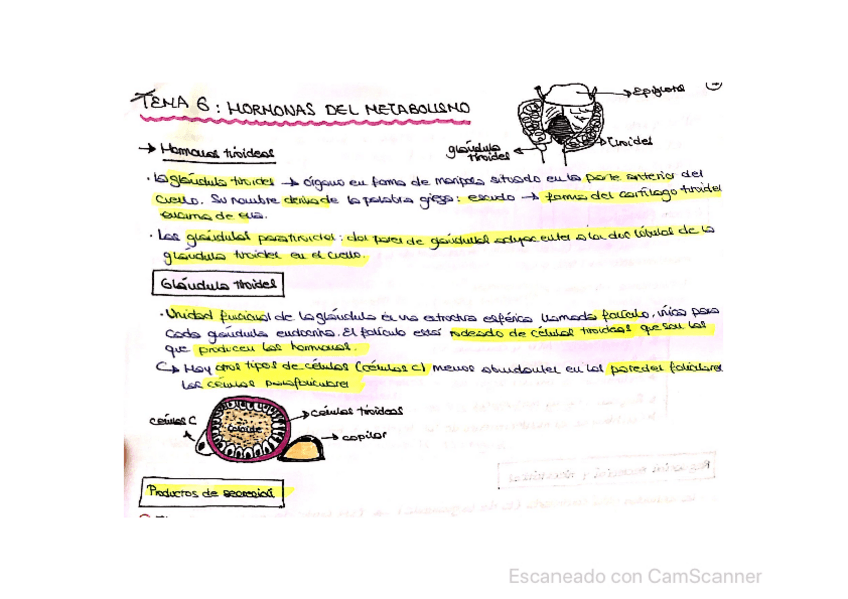 TEMA 6: HORMONAS DEL METABOLISMO
Epiglotis
glándula tiroides
Tiroides
→ Hormonas tiroideas
· La glándula tiroides → órgano en forma de mariposa situado en la parte anterior del
cuello. Su nombre deriva de la palabra griega: escudo → forma del cartílago tiroides
encima de ella.
· Las glándulas paratiroides: dos pares de glándulas adyacentes a los dos lóbulos de la
glándula tiroides en el cuello.
Glándula tiroides
· Unidad funcional de la glándula es una estructura esférica llamada folículo, única para
cada glándula endocrina. El folículo está rodeado de células tiroideas que son las
que producen las hormonas.
↳ Hay otros tipos de células (células C) menos abundantes en las paredes foliculares
las células parafoliculares
células C
coloide
células tiroideas
capilar
Productos de secreción
Escaneado con CamScanner